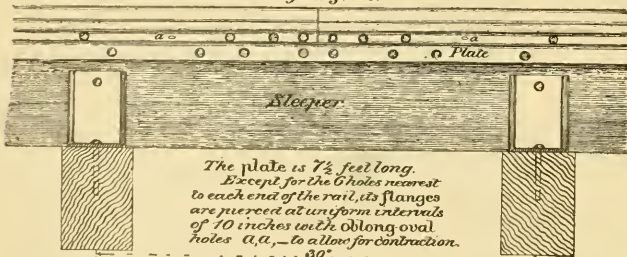 a a
Plate
Sleeper
The plate is 7½ feet long.
Except for the 6 holes nearest
to each end of the rail, its flanges
are pierced at uniform intervals
of 10 inches with oblong-oval
holes a,a,– to allow for contraction.
30"